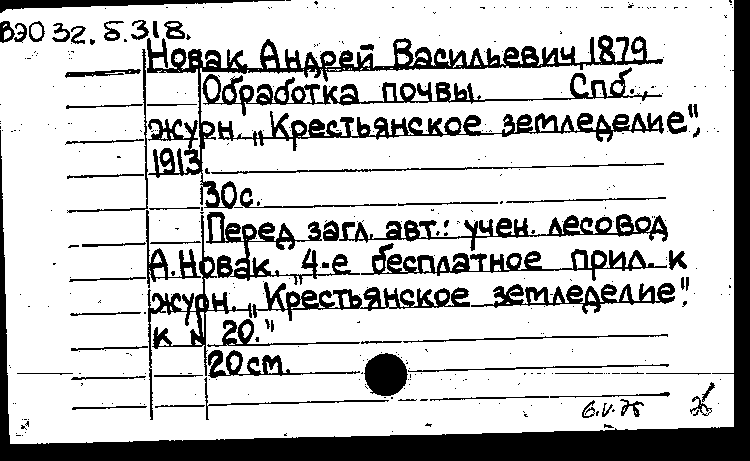 ВЭО 32. Б. 318.
Новак, Андрей Васильевич, 1879
Обработка почвы. Спб.,
журн. „Крестьянское земледелие",
1913.
30с.
Перед загл. авт.: учен. лесовод
А. Новак. „4-е бесплатное прил. к
журн. „Крестьянское земледелие".
к № 20."
20см.
6.V.75